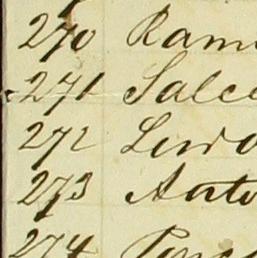 270 Ram
271 Salce
272
273 Anto
274